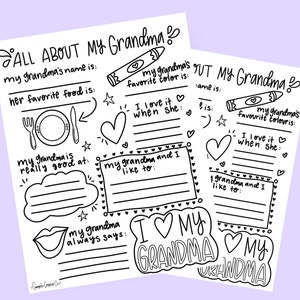 ALL ABOUT MY Grandma
my grandma's name is:
my grandma's
favorite color is:
her favorite food is:
I love it
when she:
my grandma's
really good at:
my grandma and I
like to:
my grandma
always says:
I MY
GRANDMA
OUT MY Grandma
my grandma's
favourite colour is:
I love it
when she:
grandma and I
like to:
I MY
GRANDMA